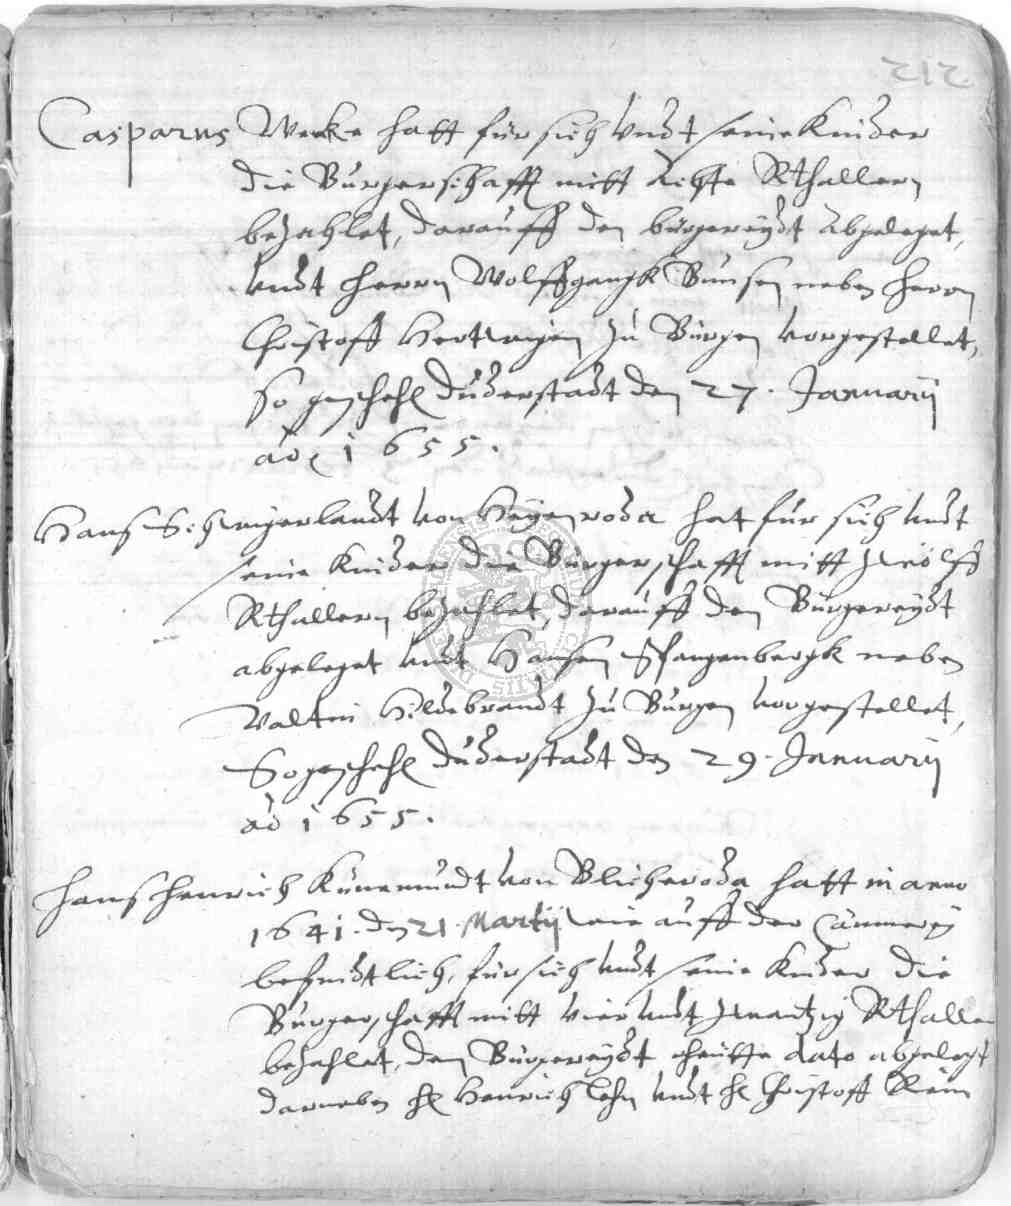 212
Casparus Werke hatt für sich vndt seine Kinder
die Bürgerschafft mitt Achte Rthallern
bezahlet, darauff den bürgereydt abgeleget,
vndt Herrn Wolffgangk Bunsen neben Herrn
Christoff Hertwigen zu Bürgen vorgestellet,
So geschehen Duderstadt den 27. Januarij
aō 1655.
Hans Schweigerlandt von Hägenroda hat für sich vndt
seine Kinder die Bürgerschafft mitt zwölff
Rthallern bezahlet, darauff den Bürgereydt
abgeleget vndt Hansen Spangenbergk neben
Valtin Hildebrandt zu Bürgen vorgestellet,
So geschehen Duderstadt den 29. Januarij
aō 1655.
Hans Henrich Künemundt von Blicheroda hatt in anno
1641. den 21. Martij wie auff der Cämmerey
befindtlich, für sich vndt seine Kinder die
Bürgerschafft mitt vier vndt zwantzig Rthaller
bezahlet, den Bürgereydt heutte dato abgelegt
darneben H. Henrich Lehn vndt H. Christoff Klein